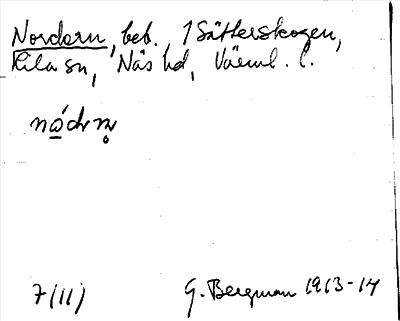 Nordarn, beb. i Sätterskogen,
Kila sn, Näs hd, Värml. l.
7(11) G. Bergman 1913-14